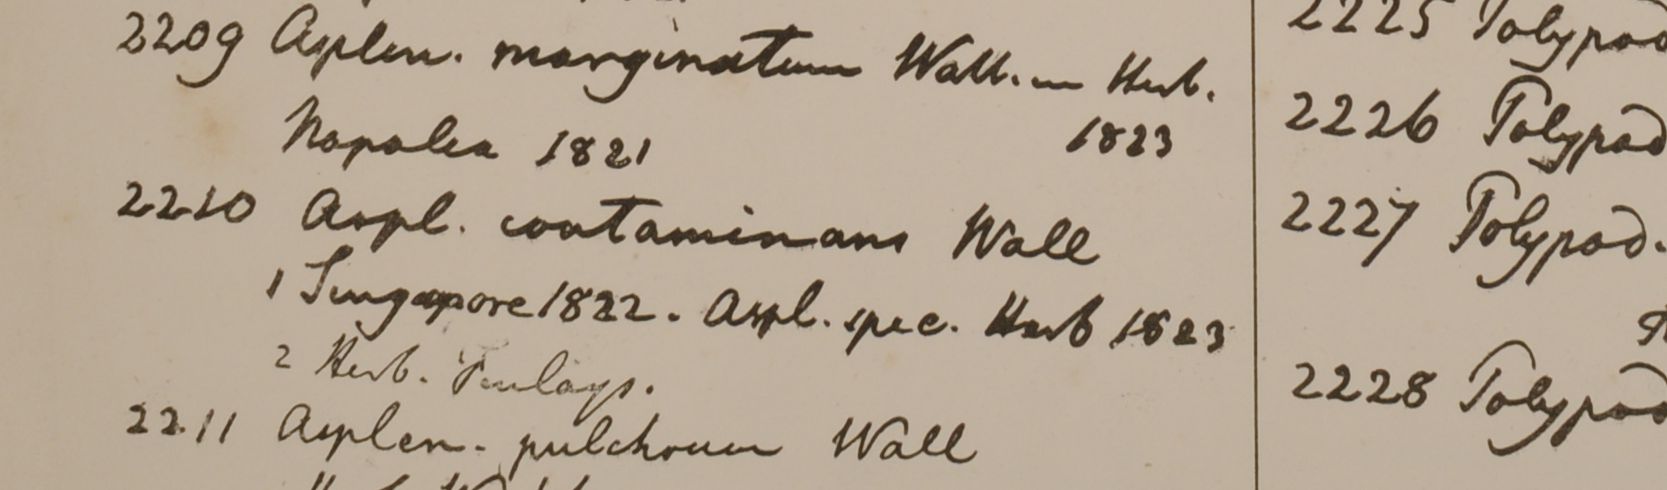 2209 Asplen. marginatum Wall. in Herb.
Napalia 1821 1823
2210 Aspl. contaminans Wall
1 Singapore 1822. Aspl. spec. Herb 1823
2 Herb. Finlays.
2211 Asplen. pulchrum Wall
2225 Polypod
2226 Polypod
2227 Polypod.
2228 Polypod